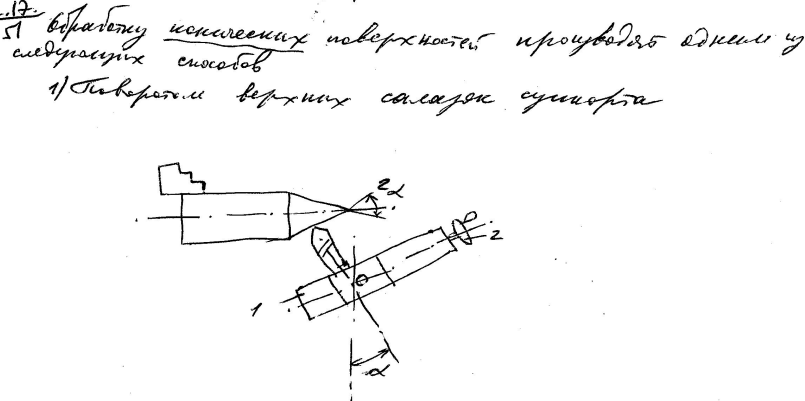 17.
51 Обработку конических поверхностей производят одним из
следующих способов
1) Поворотом верхних салазок суппорта
2α
2
1
α